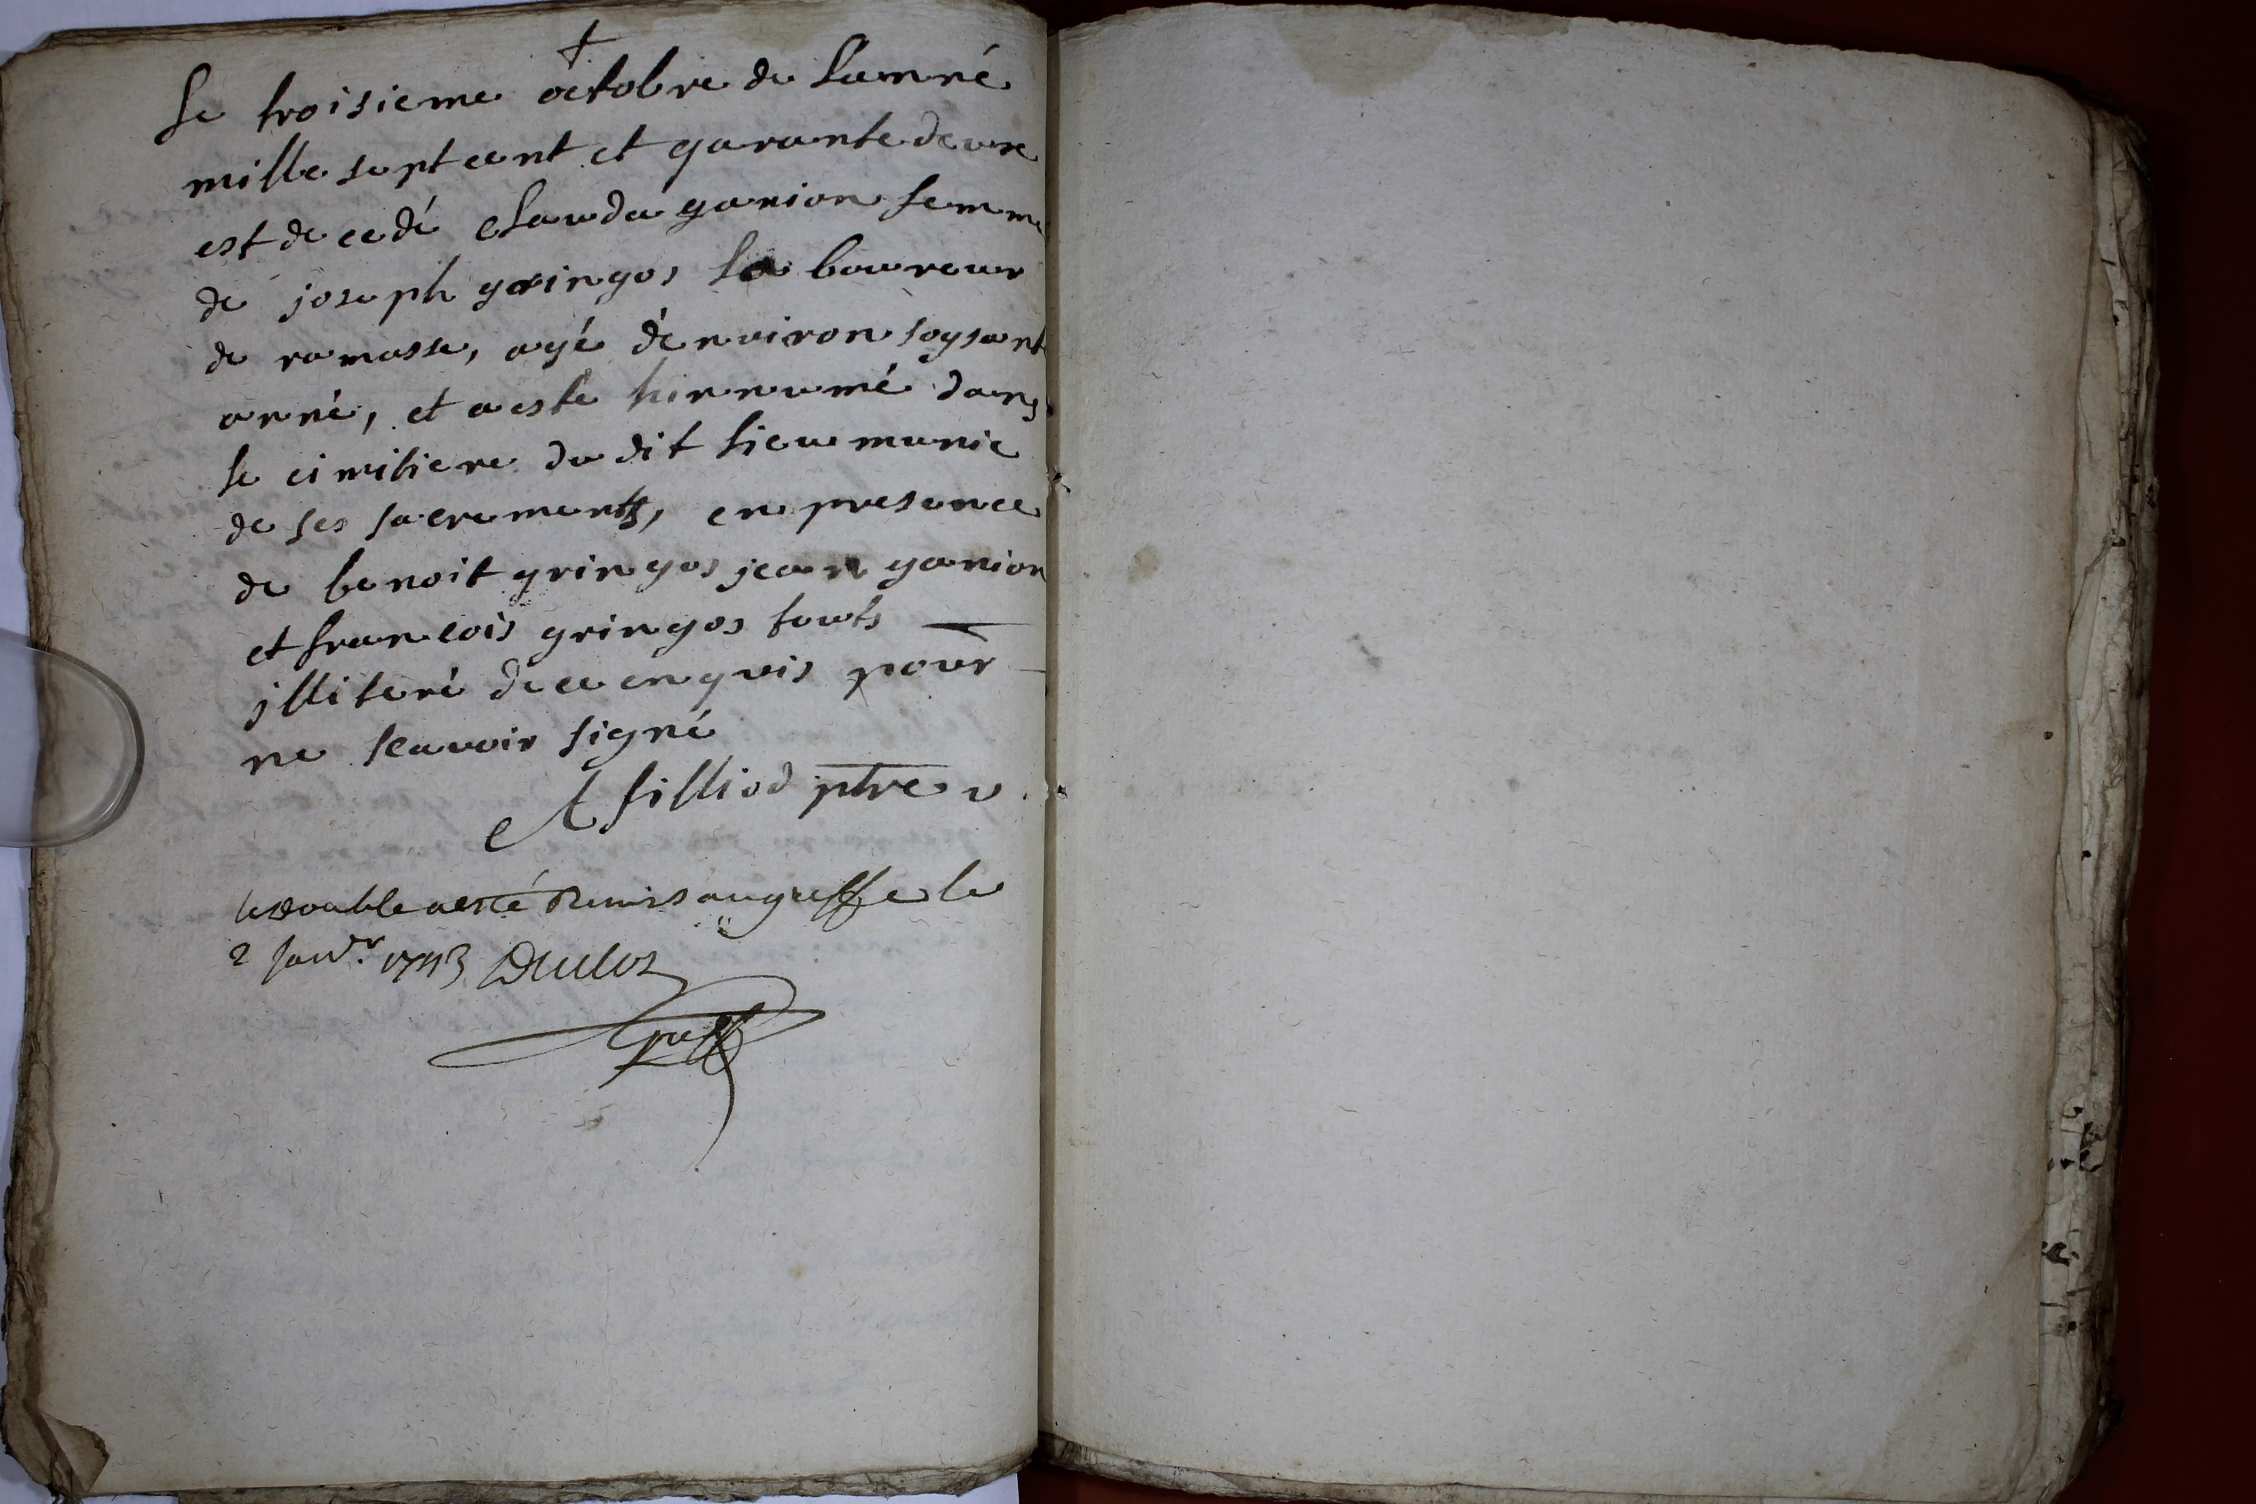 le troisieme octobre de l'anné
mille sept cent et qarante deux
est decedé clauda ganion femme
de joseph gringos laboureur
de ramasse, agé d'environ soysant
anné, et a este hinnumé dans
le cimitiere du dit lieu munie
de ses sacrements, en presence
de benoit gringos jean ganion
et francois gringos touts
jlliteré de ce enquis pour
ne scavoir signé
A filliod ptre v.
le double a esté Remis au greffe le
2 janvr. 1743 Duclos